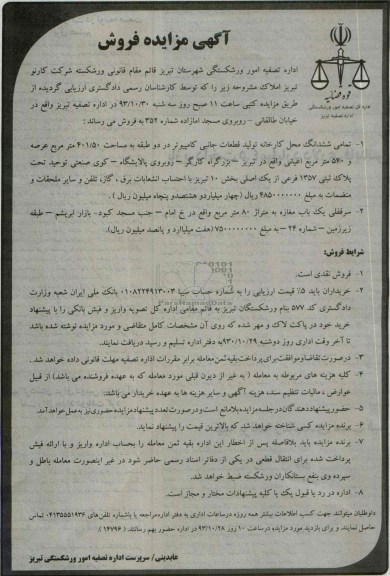 آگهی مزایده فروش
قوه قضائیه
اداره تصفیه امور ورشکستگی شهرستان تبریز قائم مقام قانونی ورشکسته شرکت کارنو
تبریز املاک مشروحه زیر را که توسط کارشناسان رسمی دادگستری ارزیابی گردیده از
طریق مزایده کتبی ساعت ۱۱ صبح روز سه شنبه ۹۳/۱۰/۳۰ در اداره تصفیه تبریز واقع در
خیابان طالقانی - روبروی مسجد امازاده شماره ۳۵۴ به فروش می رساند :
۱- تمامی ششدانگ محل کارخانه تولید قطعات جانبی کامپیوتر در دو طبقه به مساحت ۴۰۱/۵۰ متر مربع عرصه
و ۵۴۰ متر مربع اعیانی واقع در تبریز – بزرگراه کارگر – روبروی پالایشگاه – کوی صنعتی توحید تحت
پلاک ثبتی ۱۳۵۷ فرعی از یک اصلی بخش ۱۰ تبریز با احتساب انشعابات برق ، گاز، تلفن و سایر ملحقات و
منضمات به مبلغ ۴۸۵۰۰۰۰۰۰۰ ریال (چهار میلیارد و هشتصدو پنجاه میلیون ریال ) .
۲- سرقفلی یک باب مغازه به متراژ ۸۰ متر مربع واقع در خ امام – جنب مسجد کبود- بازار ابریشم – طبقه
زیرزمین – شماره ۲۴ – به مبلغ ۷۵۰۰۰۰۰۰۰۰ (هفت میلیارد و پانصد میلیون ریال).
شرایط فروش:
۱- فروش نقدی است.
۲- خریداران باید ۵٪ قیمت ارزیابی را به شماره حساب سیبا ۰۱۰۸۲۲۴۹۱۳۰۰۳ بانک ملی ایران شعبه وزارت
دادگستری کد ۵۷۷ بنام ورشکستگان تبریز به قائم مقامی اداره کل تصویه واریز و فیش بانکی را با پیشنهاد
خرید خود در پاکت لاک و مهر شده که روی آن مشخصات کامل متقاضی و مورد مزایده نوشته شده باشد
تا آخر وقت اداری روز دوشنبه ۹۳/۱۰/۲۹ به دفتر اداره تسلیم و رسید دریافت نمایند.
۳- درصورت تقاضا و موافقت برای پرداخت بقیه ثمن معامله برابر مقررات اداره تصفیه مهلت قانونی داده خواهد شد.
۴- کلیه هزینه های مربوطه به معامله ( به غیر از دیون قبلی مورد معامله که به عهده فروشنده می باشد) از قبیل
عوارض ، مالیات تنظیم سند، هزینه آگهی و سایر هزینه ها به عهده خریدار می باشد.
۵- حضور پیشنهاد دهندگان در جلسه مزایده بلامانع است و درصورت تعدد پیشنهاد مزایده حضوری نیز به عمل خواهد آمد.
۶- برنده مزایده کسی شناخته خواهد شد که بالاترین قیمت را پیشنهاد نماید.
۷- برنده مزایده باید بلافاصله پس از اخطار این اداره بقیه ثمن معامله را بحساب اداره واریز و با ارائه فیش
پرداخت شده برای انتقال قطعی در یکی از دفاتر اسناد رسمی حاضر شود در غیر اینصورت معامله باطل و
سپرده وی بنفع بستانکاران ورشکسته ضبط خواهد شد.
۸- اداره در رد یا قبول یک یا کلیه پیشنهادات مختار و مجاز است.
داوطلبان میتوانند جهت کسب اطلاعات بیشتر همه روزه درساعات اداری به دفتر اداره مراجعه یا باشماره تلفن‌های ۰۴۱۳۵۵۵۱۹۳۶ تماس
حاصل نمایند. و برای بازدید مورد مزایده درساعت ۱۰ روز ۹۳/۱۰/۲۸ در اداره حضور بهم رسانند. ( ۱۴۷۹۶ )
عابدینی / سرپرست اداره تصفیه امور ورشکستگی تبریز